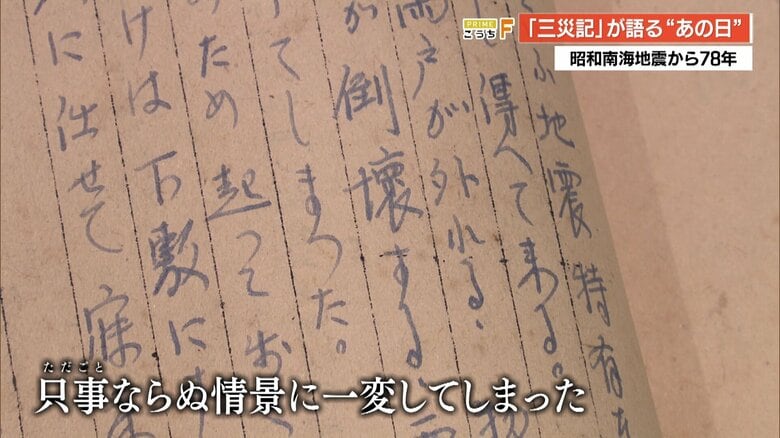 PRIME
こうち
F
「三災記」が語る“あの日”
昭和南海地震から78年
ふ地震特有
得へて来る。
雨戸が外れる、
が倒壊する、
てしまつた。
ため起つて
けは下敷に
に任せて寐
ただごと
只事ならぬ情景に一変してしまった